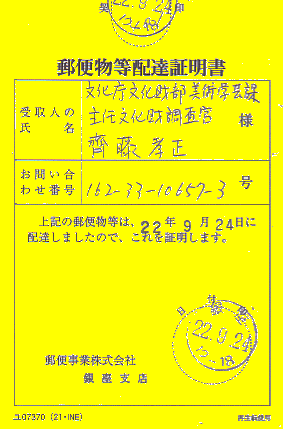 22.9.24
12-18
郵便物等配達証明書
受取人の氏名
文化庁文化財部美術学芸課
主任文化財調査官
齊藤孝正
様
お問い合わせ番号
162-33-10657-3
号
上記の郵便物等は、22年9月24日に
配達しましたので、これを証明します。
22.9.24
12-18
郵便事業株式会社
銀座支店
ユ07370 (21・INE)
再生紙使用